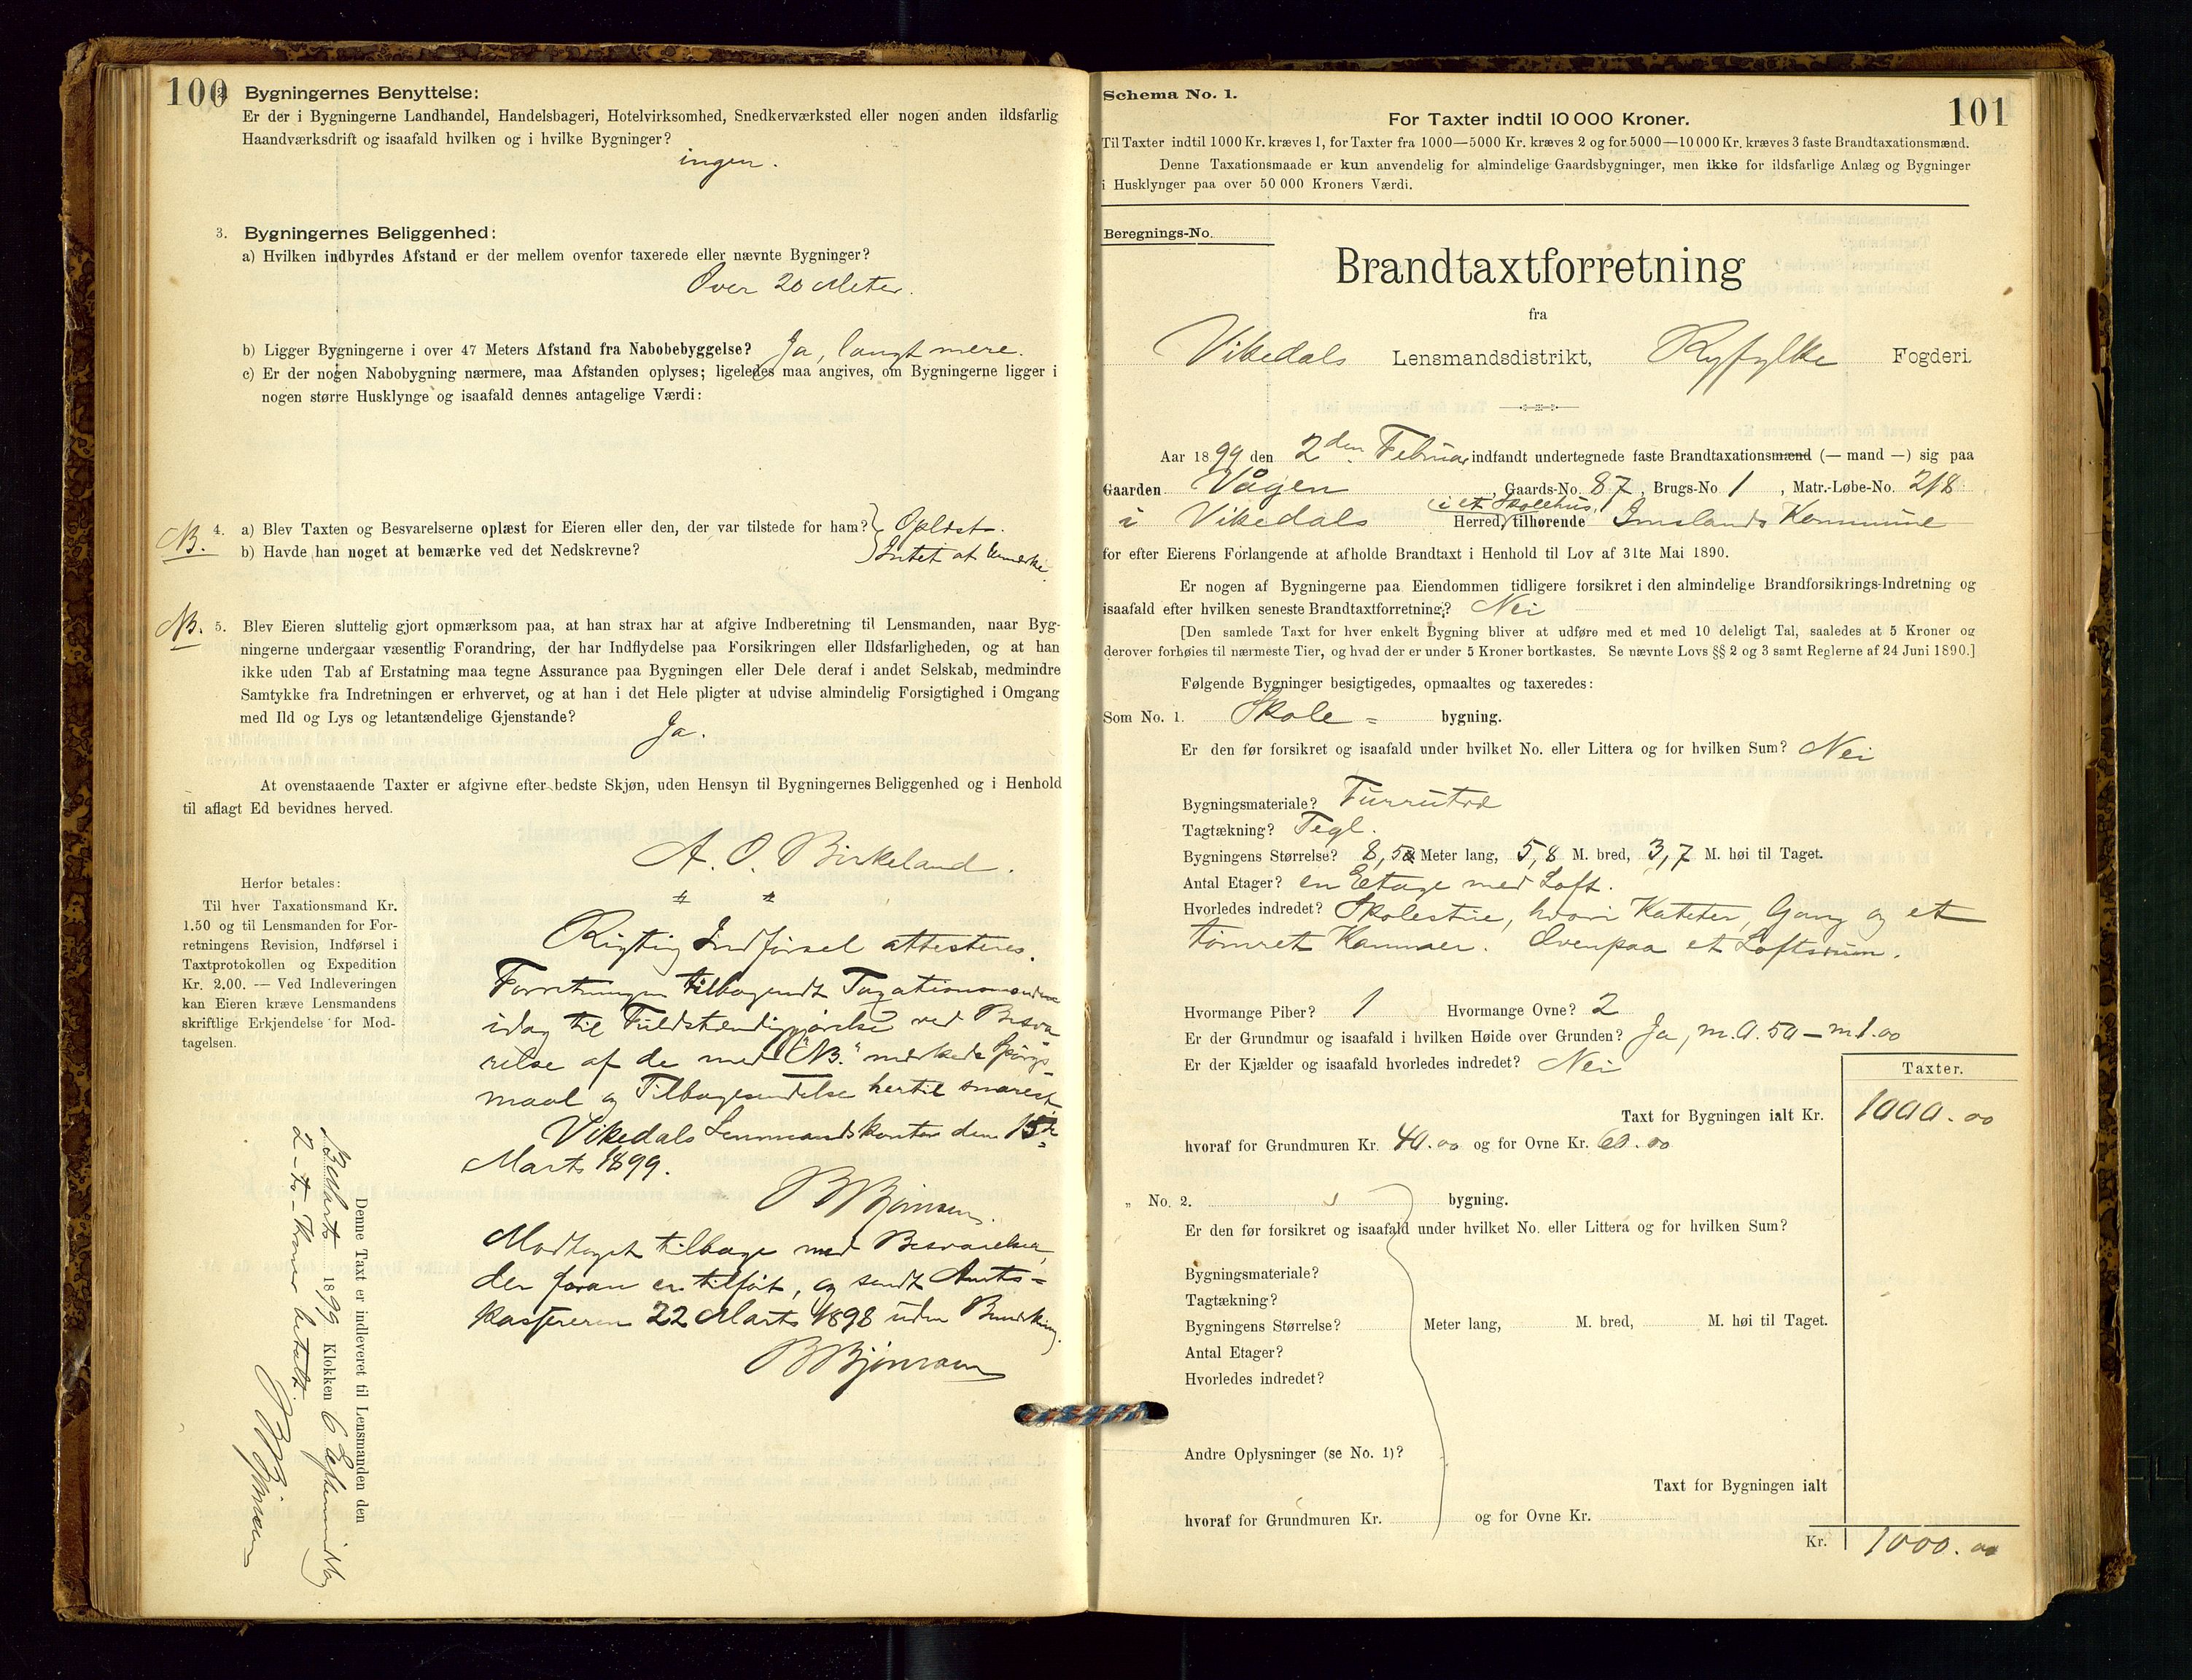 100
2. Bygningernes Benyttelse:
Er der i Bygningerne Landhandel, Handelsbageri, Hotelvirksomhed, Snedkerværksted eller nogen anden ildsfarlig
Haandværksdrift og isaafald hvilken og i hvilke Bygninger?
ingen.
3. Bygningernes Beliggenhed:
a) Hvilken indbyrdes Afstand er der mellem ovenfor taxerede eller nævnte Bygninger?
Over 20 Meter.
b) Ligger Bygningerne i over 47 Meters Afstand fra Nabobebyggelse? Ja, langt mere.
c) Er der nogen Nabobygning nærmere, maa Afstanden oplyses; ligeledes maa angives, om Bygningerne ligger i
nogen større Husklynge og isaafald dennes antagelige Værdi:
NB. 4. a) Blev Taxten og Besvarelserne oplæst for Eieren eller den, der var tilstede for ham? Oplæst.
b) Havde han noget at bemærke ved det Nedskrevne? Intet at bemærke.
NB. 5. Blev Eieren sluttelig gjort opmærksom paa, at han strax har at afgive Indberetning til Lensmanden, naar Byg-
ningerne undergaar væsentlig Forandring, der har Indflydelse paa Forsikringen eller Ildsfarligheden, og at han
ikke uden Tab af Erstatning maa tegne Assurance paa Bygningen eller Dele deraf i andet Selskab, medmindre
Samtykke fra Indretningen er erhvervet, og at han i det Hele pligter at udvise almindelig Forsigtighed i Omgang
med Ild og Lys og letantændelige Gjenstande?
Ja.
At ovenstaaende Taxter er afgivne efter bedste Skjøn, uden Hensyn til Bygningernes Beliggenhed og i Henhold
til aflagt Ed bevidnes herved.
A. O. Birkeland.
Herfor betales:
Til hver Taxationsmand Kr.
1.50 og til Lensmanden for For-
retningens Revision, Indførsel i
Taxtprotokollen og Expedition
Kr. 2.00. — Ved Indleveringen
kan Eieren kræve Lensmandens
skriftlige Erkjendelse for Mod-
tagelsen.
Rigtig Indførsel attesteres.
Forretningen tilbagesendt Taxationsmanden
idag til Fuldstændiggjørelse ved Besva-
relse af de med "NB." mærkede Spørgs-
maal og Tilbagesendelse hertil snarest.
Vikedals Lensmandskontor den 15de
Marts 1899.
B Bjørnsen.
Modtaget tilbage med Besvarelse,
der foran er tilført, og sendt Amts-
kassereren 22 Marts 1898 uden Bemærkning.
B Bjørnsen
Denne Taxt er indleveret til Lensmanden den
3 Marts 1899 Klokken 6 Eftermiddag
2 – to – Kroner betalt.
B Bjørnsen
Schema No. 1.
101
For Taxter indtil 10 000 Kroner.
Til Taxter indtil 1000 Kr. kræves 1, for Taxter fra 1000—5000 Kr. kræves 2 og for 5000—10 000 Kr. kræves 3 faste Brandtaxationsmænd.
Denne Taxationsmaade er kun anvendelig for almindelige Gaardsbygninger, men ikke for ildsfarlige Anlæg og Bygninger
i Husklynger paa over 50 000 Kroners Værdi.
Beregnings-No.
Brandtaxtforretning
fra
Vikedals Lensmandsdistrikt, Ryfylke Fogderi.
Aar 1899 den 2den Februar indfandt undertegnede faste Brandtaxationsmænd (— mand —) sig paa
Gaarden Vågen, Gaards-No. 87, Brugs-No 1, Matr.-Løbe-No. 218
i et Skolehus,
i Vikedals Herred, tilhørende Imslands Kommune
for efter Eierens Forlangende at afholde Brandtaxt i Henhold til Lov af 31te Mai 1890.
Er nogen af Bygningerne paa Eiendommen tidligere forsikret i den almindelige Brandforsikrings-Indretning og
isaafald efter hvilken seneste Brandtaxtforretning? Nei
[Den samlede Taxt for hver enkelt Bygning bliver at udføre med et med 10 deleligt Tal, saaledes at 5 Kroner og
derover forhøies til nærmeste Tier, og hvad der er under 5 Kroner bortkastes. Se nævnte Lovs §§ 2 og 3 samt Reglerne af 24 Juni 1890.]
Følgende Bygninger besigtigedes, opmaaltes og taxeredes:
Som No. 1. Skole = bygning.
Er den før forsikret og isaafald under hvilket No. eller Littera og for hvilken Sum? Nei
Bygningsmateriale? Furrutræ
Tagtækning? Tegl.
Bygningens Størrelse? 8,5 Meter lang, 5,8 M. bred, 3,7 M. høi til Taget.
Antal Etager? en Etage med Loft.
Hvorledes indredet? Skolestue, hvori Kateter, Gang og et
tømret Kammer. Ovenpaa et Loftsrum.
Hvormange Piber? 1 Hvormange Ovne? 2
Er der Grundmur og isaafald i hvilken Høide over Grunden? Ja, m. 0.50 – m 1.00
Er der Kjælder og isaafald hvorledes indredet? Nei
Taxter.
Taxt for Bygningen ialt Kr. 1000.00
hvoraf for Grundmuren Kr. 40.00 og for Ovne Kr. 60.00
„ No. 2. bygning.
Er den før forsikret og isaafald under hvilket No. eller Littera og for hvilken Sum?
Bygningsmateriale?
Tagtækning?
Bygningens Størrelse? Meter lang, M. bred, M. høi til Taget.
Antal Etager?
Hvorledes indredet?
Andre Oplysninger (se No. 1)?
Taxt for Bygningen ialt
hvoraf for Grundmuren Kr. og for Ovne Kr.
Kr. 1000.00